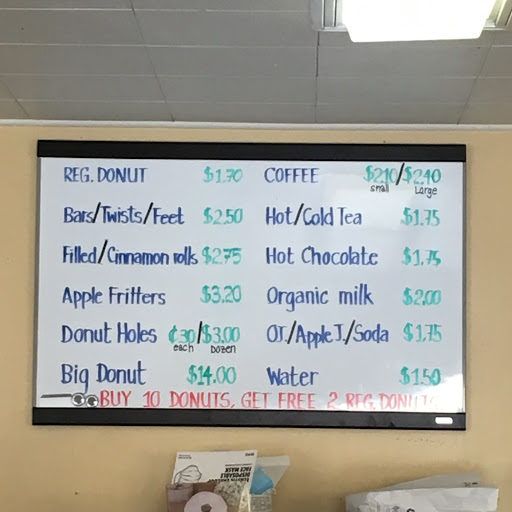 REG. DONUT $1.70 COFFEE $2.10/$2.40
small Large
Bars/Twists/Feet $2.50 Hot/Cold Tea $1.75
Filled/Cinnamon rolls $2.75 Hot Chocolate $1.75
Apple Fritters $3.20 Organic milk $2.00
Donut Holes ¢30/$3.00 OJ./Apple J./Soda $1.75
each DOZEN
Big Donut $14.00 Water $1.50
BUY 10 DONUTS, GET FREE 2 REG. DONUTS
DISPOSABLE
FACE MASK